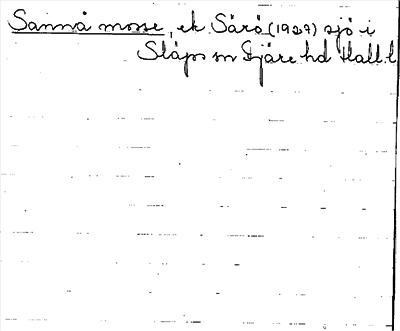 Sannå mosse, ek Särö (1929) sjö i
Släps sn Fjäre hd Hall. l